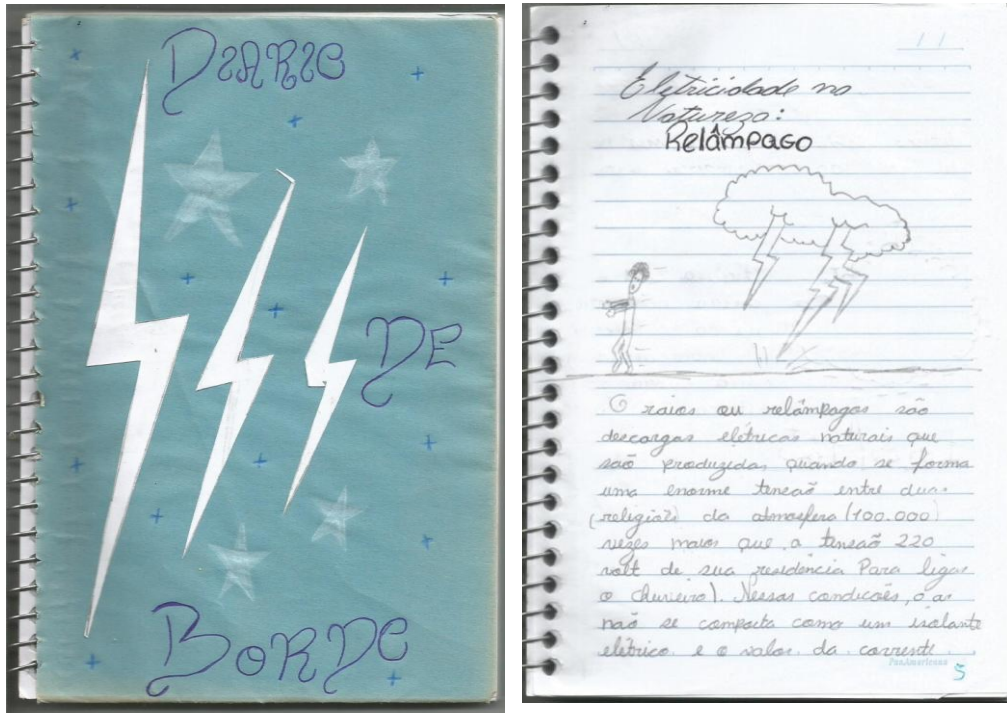 DIARIO
DE
BORDO
Eletricidade na
Natureza:
Relâmpago
O raios ou relâmpagos são
descargas elétricas naturais que
são produzidas quando se forma
uma enorme tensão entre duas
(religiões) da atmosfera (100.000
vezes maior que a tensão 220
volt de sua residência Para ligar
o chuveiro). Nessas condições, o ar
não se comporta como um isolante
elétrico e o valor da corrente
PanAmericana
5